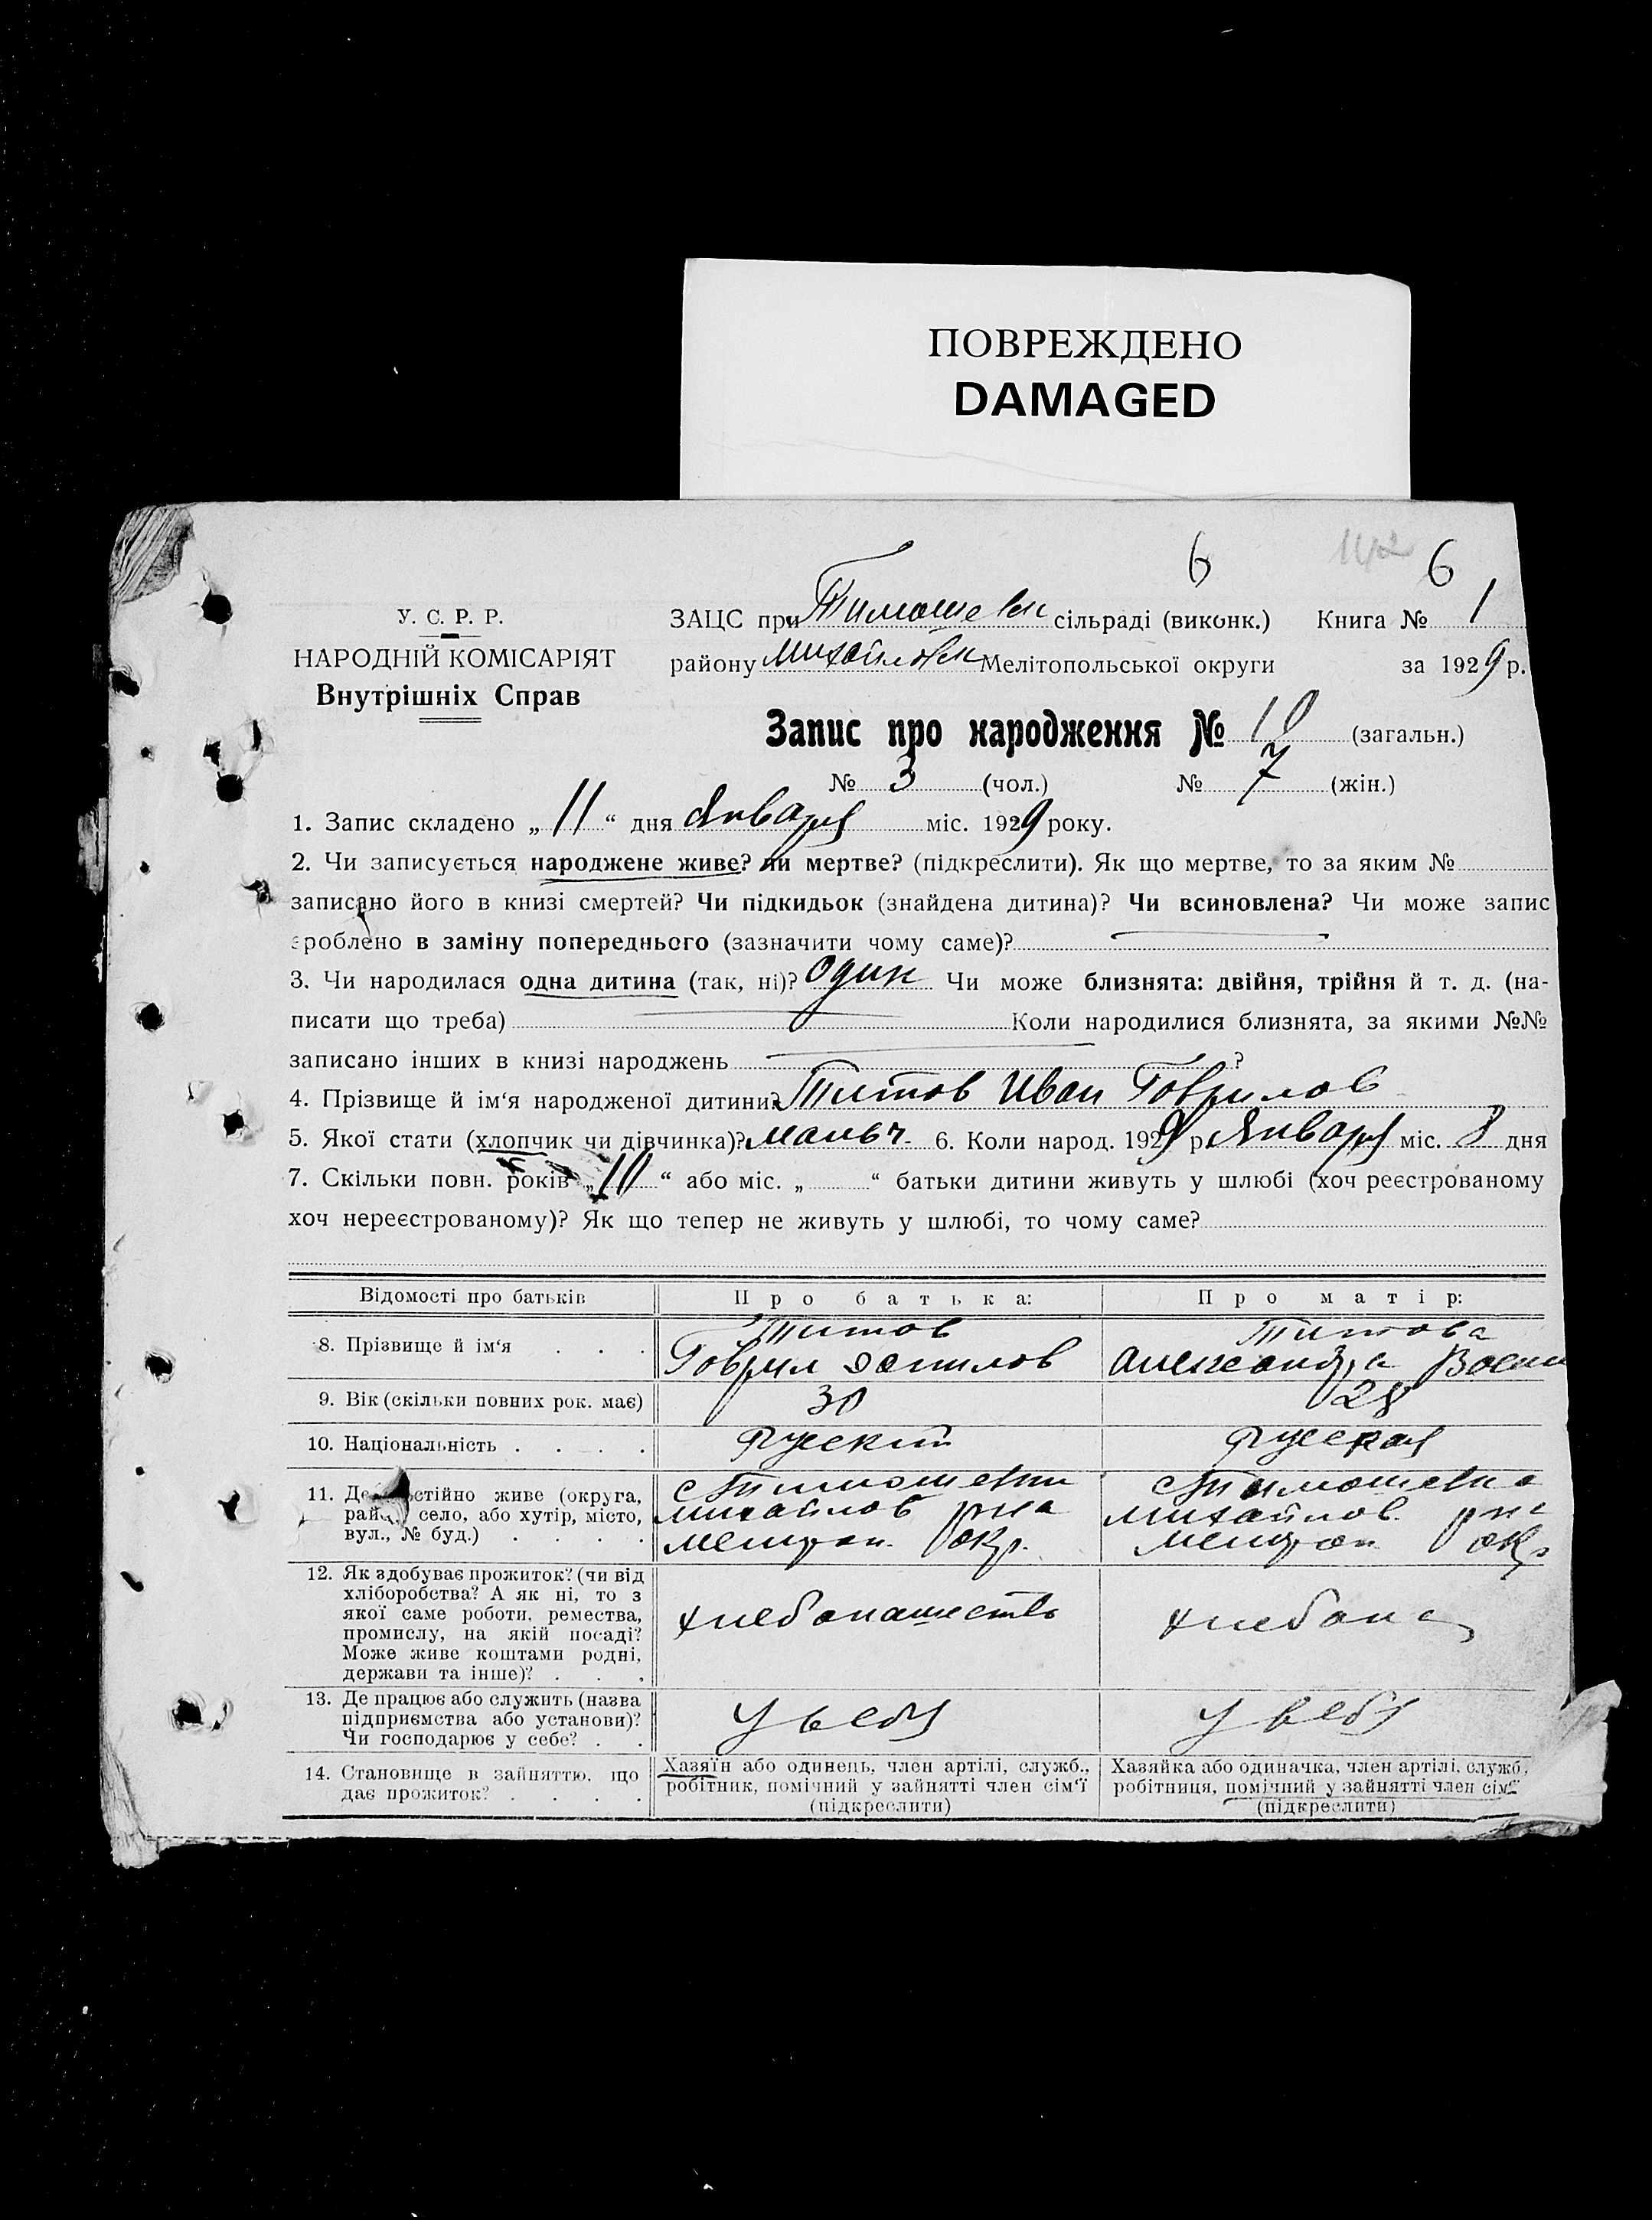 ПОВРЕЖДЕНО
DAMAGED
6 6
У. С. Р. Р.
НАРОДНІЙ КОМІСАРІЯТ
Внутрішніх Справ
ЗАЦС при Тимошевк сільраді (виконк.) Книга № 1
району Михайловк Мелітопольської округи за 1929 р.
Запис про народження № 10 (загальн.)
№ 3 (чол.) № 7 (жін.)
1. Запис складено „ 11 “ дня Января міс. 1929 року.
2. Чи записується народжене живе? чи мертве? (підкреслити). Як що мертве, то за яким №
записано його в книзі смертей? Чи підкидьок (знайдена дитина)? Чи всиновлена? Чи може запис
зроблено в заміну попереднього (зазначити чому саме)?
3. Чи народилася одна дитина (так, ні)? Один Чи може близнята: двійня, трійня й т. д. (на-
писати що треба) Коли народилися близнята, за якими №№
записано інших в книзі народжень ?
4. Прізвище й ім‘я народженої дитини? Титов Иван Гаврилов
5. Якої стати (хлопчик чи дівчинка)? мальч. 6. Коли народ. 1929 р. Января міс. 8 дня
7. Скільки повн. років „ 10 “ або міс. „ “ батьки дитини живуть у шлюбі (хоч реєстрованому
хоч нереєстрованому)? Як що тепер не живуть у шлюбі, то чому саме?
Відомості про батьків Про батька: Про матір:
8. Прізвище й ім‘я . . . Титов Гаврил Титова Александра
9. Вік (скільки повних рок. має) 30 28
10. Національність . . . . Русский Русская
11. Де постійно живе (округа, с Тимошевки с Тимошевка
район, село, або хутір, місто, михайлов рна михайлов. рна
вул., № буд.) . . . . мелитоп. окр. мелитоп окр
12. Як здобуває прожиток? (чи від
хліборобства? А як ні, то з
якої саме роботи, ремества, хлебопашеств хлебопа
промислу, на якій посаді?
Може живе коштами родні,
держави та інше)? . . .
13. Де працює або служить (назва
підприємства або установи)? У себя У себя
Чи господарює у себе? . .
14. Становище в зайняттю, що Хазяїн або одинець, член артілі, служб., Хазяйка або одиначка, член артілі, служб,
дає прожиток? . . . . робітник, помічний у зайнятті член сім‘ї робітниця, помічний у зайнятті член сім‘ї
(підкреслити) (підкреслити)